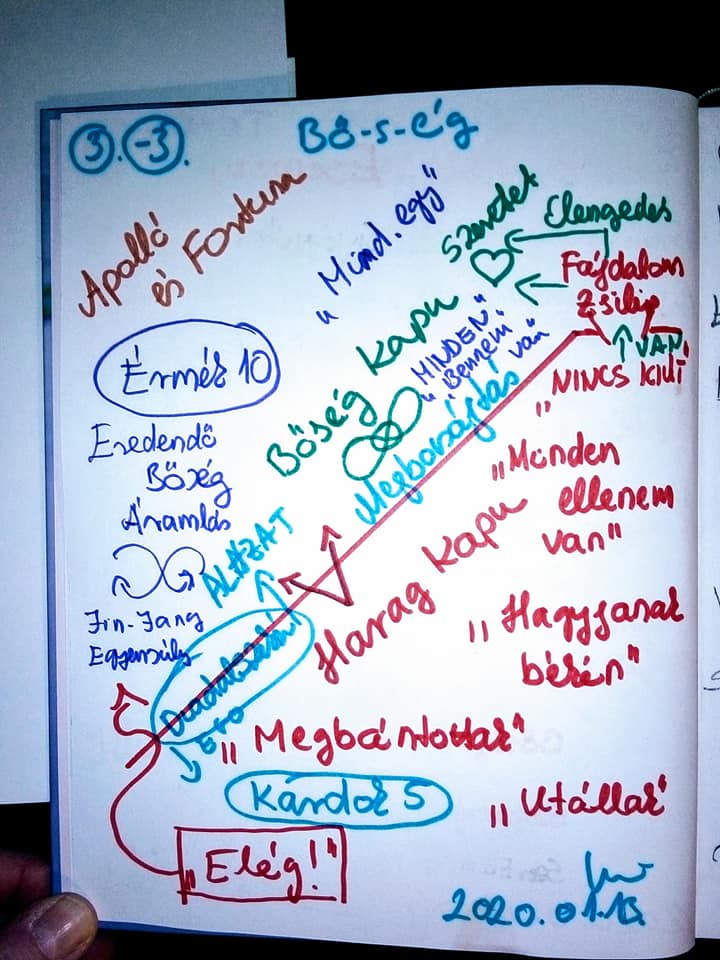 3. -3. Bő-s-ég
Apolló
és Fortuna
"Mind.egy"
Szeretet
Elengedés
Fájdalom
Zsilip
VAN!
"NINCS KIÚT
Érmék 10
Bőség kapu
MINDEN"
"Bennem
van"
Megbocsájtás
Eredendő
Bőség
Áramlás
Jin-Jang
Egyensúly
ALÁZAT
"Minden
ellenem
van"
Harag kapu
"Hagyjanak
békén"
Erő
"Megbántottak"
Kardok 5
"Utállak"
"Elég!"